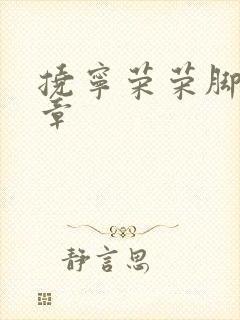 挠宁荣荣脚
章
静言思